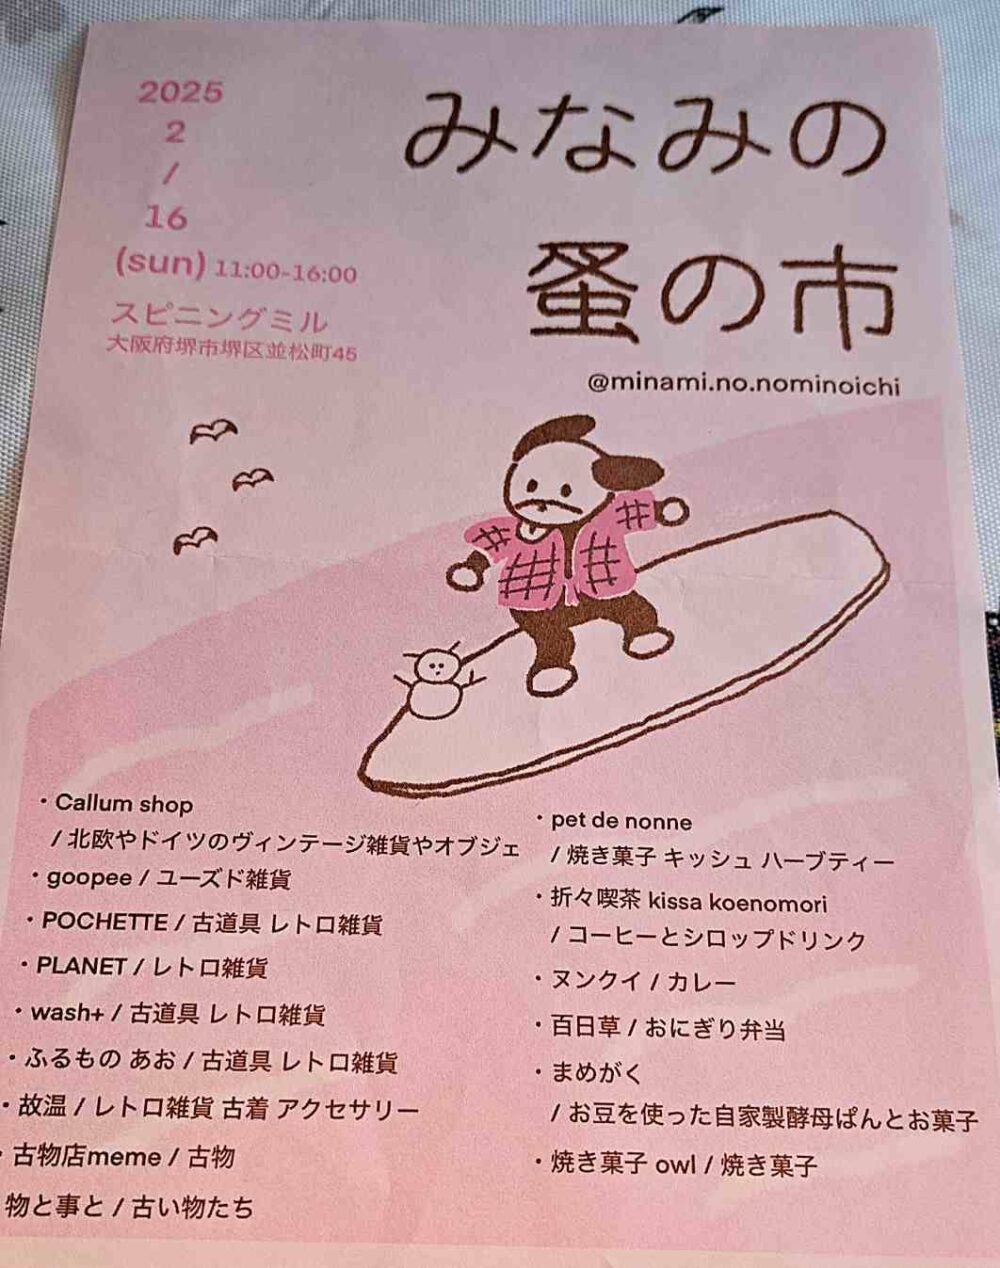 2025
2
/
16
(sun) 11:00-16:00
スピニングミル
大阪府堺市堺区並松町45
みなみの
蚤の市
@minami.no.nominoichi
・Callum shop
/ 北欧やドイツのヴィンテージ雑貨やオブジェ
・goopee / ユーズド雑貨
・POCHETTE / 古道具 レトロ雑貨
・PLANET / レトロ雑貨
・wash+ / 古道具 レトロ雑貨
・ふるもの あお / 古道具 レトロ雑貨
・故温 / レトロ雑貨 古着 アクセサリー
・古物店meme / 古物
物と事と / 古い物たち
・pet de nonne
/ 焼き菓子 キッシュ ハーブティー
・折々喫茶 kissa koenomori
/ コーヒーとシロップドリンク
・ヌンクイ / カレー
・百日草 / おにぎり弁当
・まめがく
/ お豆を使った自家製酵母ぱんとお菓子
・焼き菓子 owl / 焼き菓子